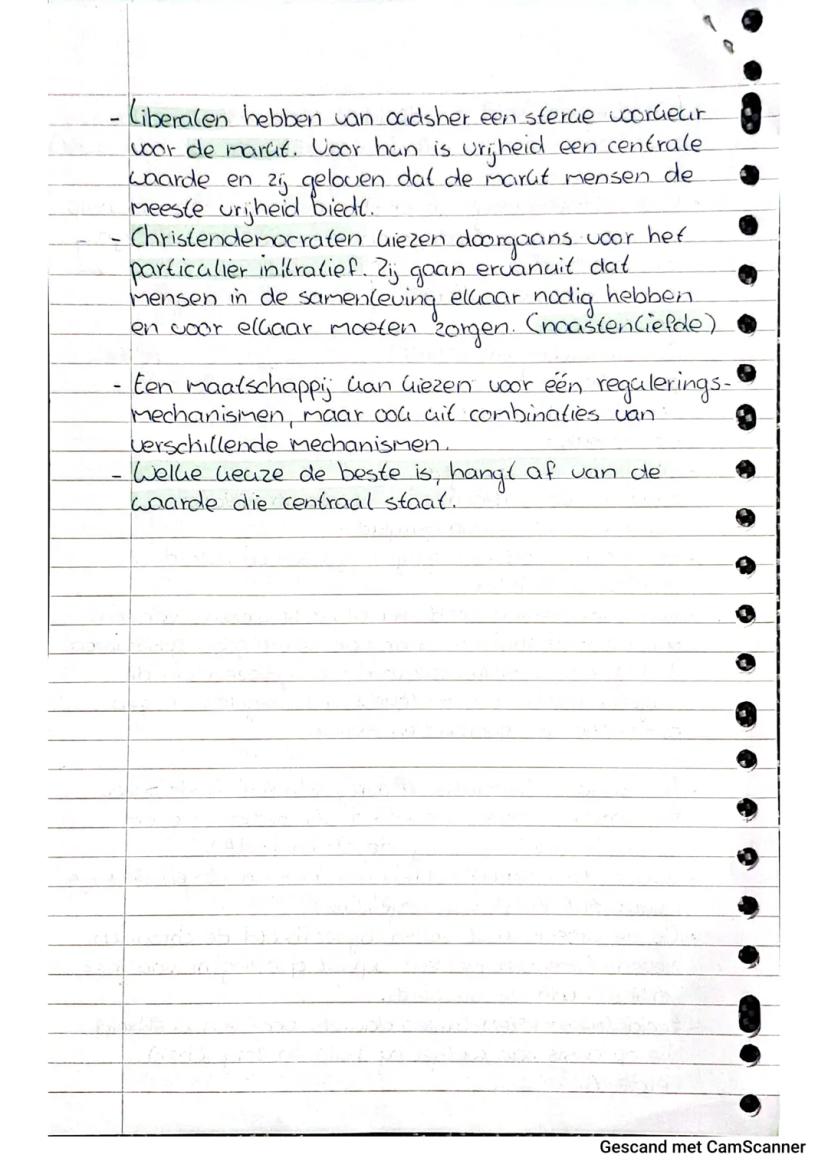 - Liberalen hebben van oudsher een sterke voorkeur
voor de markt. Voor hun is vrijheid een centrale
waarde en zij geloven dat de markt mensen de
meeste vrijheid biedt.
- Christendemocraten kiezen doorgaans voor het
particulier initiatief. Zij gaan ervanuit dat
mensen in de samenleving elkaar nodig hebben
en voor elkaar moeten zorgen. (naastenliefde)
- Een maatschappij kan kiezen voor één regulerings-
mechanismen, maar ook uit combinaties van
verschillende mechanismen.
- Welke keuze de beste is, hangt af van de
waarde die centraal staat.
Gescand met CamScanner